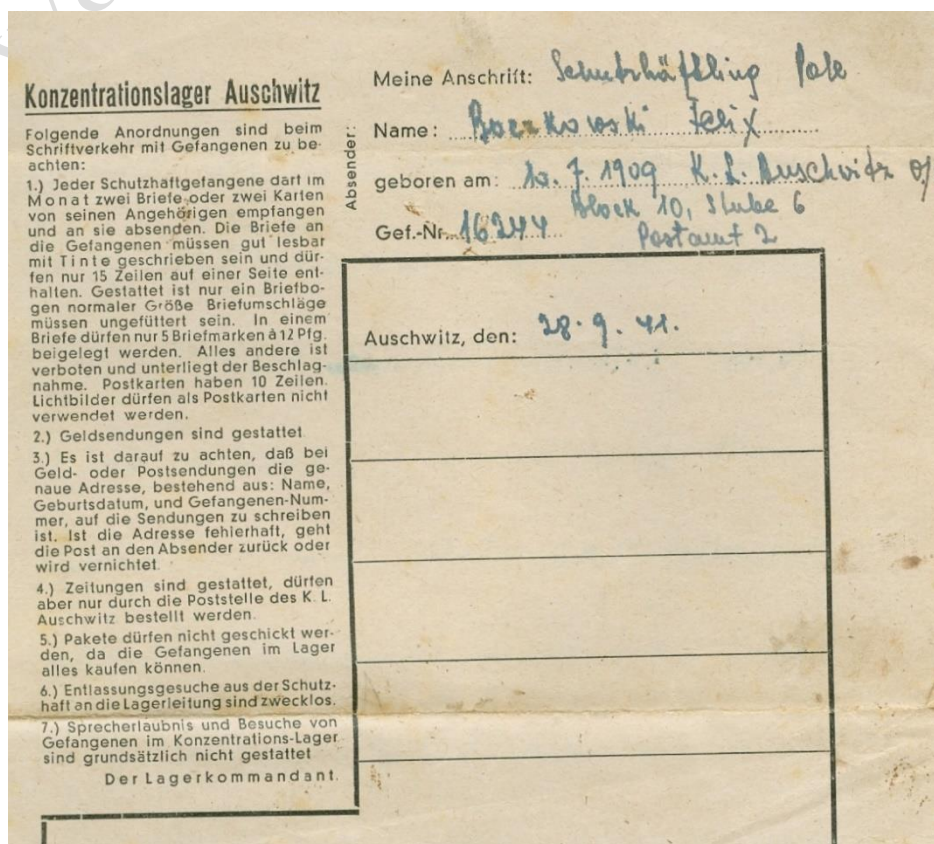 Konzentrationslager Auschwitz
Folgende Anordnungen sind beim
Schriftverkehr mit Gefangenen zu be-
achten:
1.) Jeder Schutzhaftgefangene darf im
Monat zwei Briefe oder zwei Karten
von seinen Angehörigen empfangen
und an sie absenden. Die Briefe an
die Gefangenen müssen gut lesbar
mit Tinte geschrieben sein und dür-
fen nur 15 Zeilen auf einer Seite ent-
halten. Gestattet ist nur ein Briefbo-
gen normaler Größe Briefumschläge
müssen ungefüttert sein. In einem
Briefe dürfen nur 5 Briefmarken à 12 Pfg.
beigelegt werden. Alles andere ist
verboten und unterliegt der Beschlag-
nahme. Postkarten haben 10 Zeilen.
Lichtbilder dürfen als Postkarten nicht
verwendet werden.
2.) Geldsendungen sind gestattet
3.) Es ist darauf zu achten, daß bei
Geld- oder Postsendungen die ge-
naue Adresse, bestehend aus: Name,
Geburtsdatum, und Gefangenen-Num-
mer, auf die Sendungen zu schreiben
ist. Ist die Adresse fehlerhaft, geht
die Post an den Absender zurück oder
wird vernichtet
4.) Zeitungen sind gestattet, dürfen
aber nur durch die Poststelle des K. L.
Auschwitz bestellt werden.
5.) Pakete dürfen nicht geschickt wer-
den, da die Gefangenen im Lager
alles kaufen können.
6.) Entlassungsgesuche aus der Schutz-
haft an die Lagerleitung sind zwecklos.
7.) Sprecherlaubnis und Besuche von
Gefangenen im Konzentrations-Lager
sind grundsätzlich nicht gestattet
Der Lagerkommandant.
Absender:
Meine Anschrift: Schutzhäftling Pole
Name: Boczkowski Felix
geboren am: 10.7.1909 K.L. Auschwitz
Block 10, Stube 6
Gef.-Nr. 16244 Postamt 2
Auschwitz, den: 28.9.41.